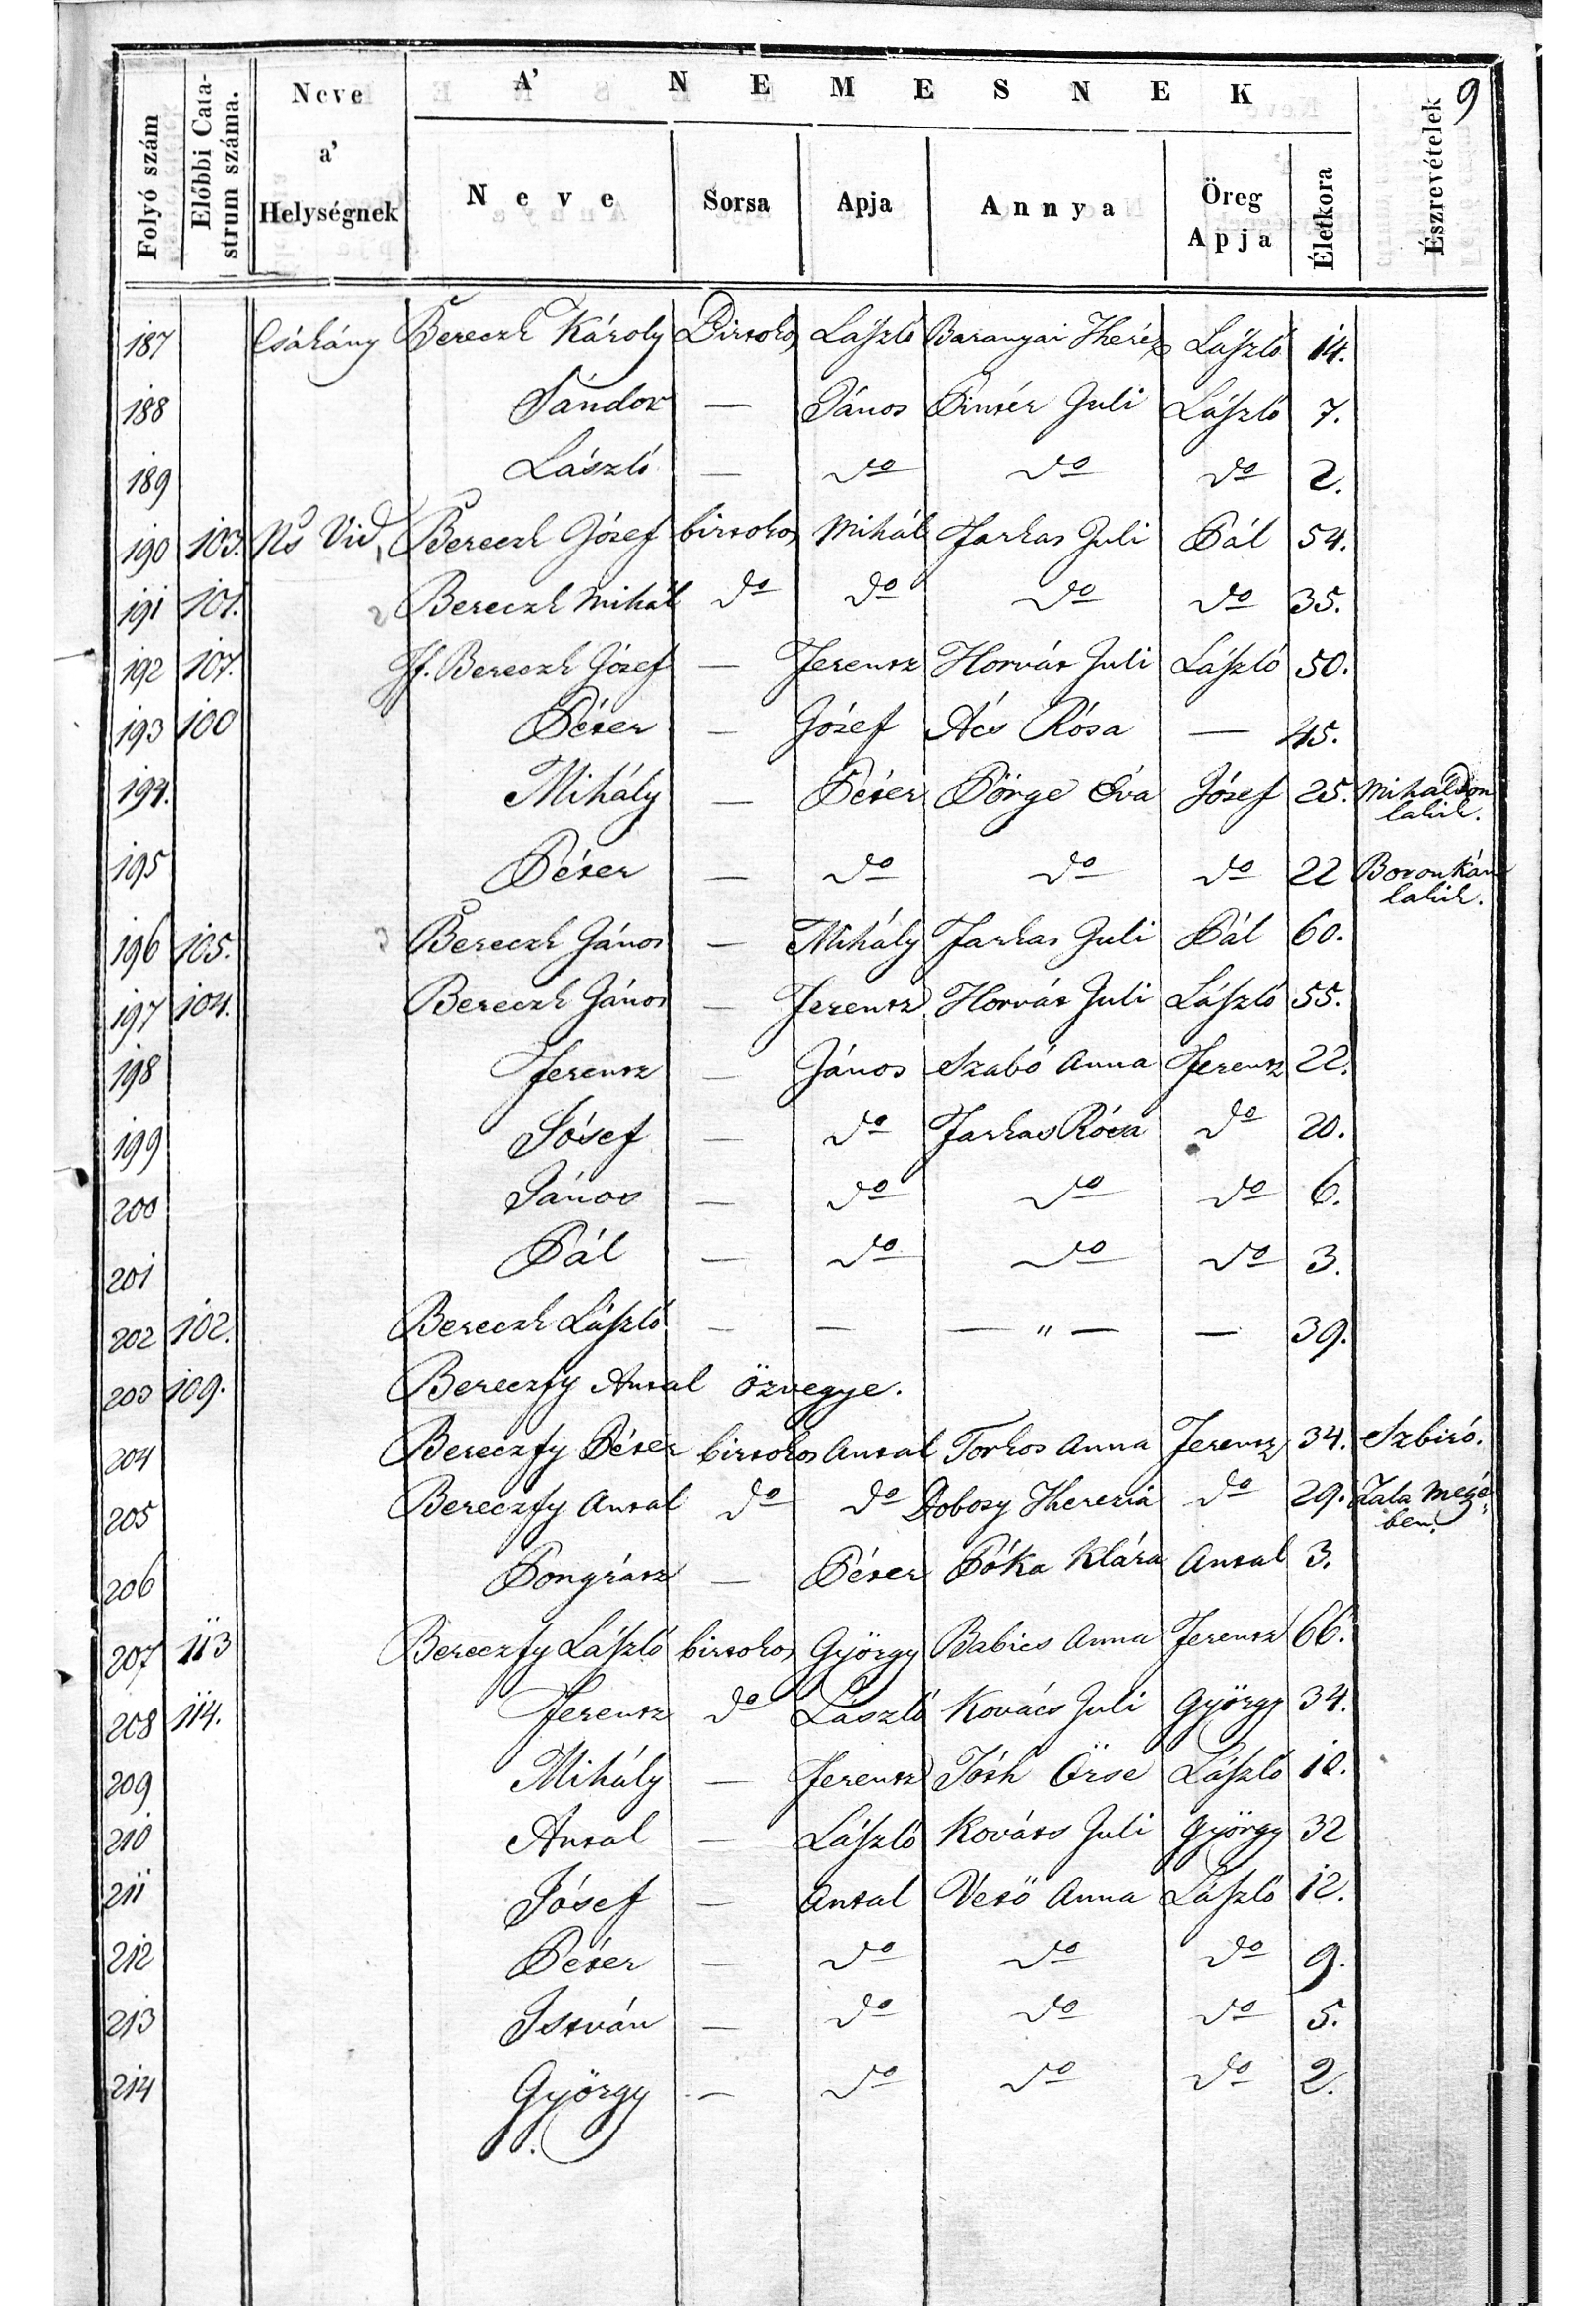 9
Folyó szám
Előbbi Cata-
strum száma.
Neve
a'
Helységnek
A' NEMESNEK
Neve
Sorsa
Apja
Annya
Öreg
Apja
Életkora
Észrevételek
187 Csákány Bereczk Károly Birtokos László Baranyai Theréz László 14.
188 Sándor — János Pintér Juli László 7.
189 László — do do do 2.
190 103. Ns Vid, Bereczk József birtokos Mihál Farkas Juli Pál 54.
191 101. 2 Bereczk Mihál do do do do 35.
192 107. If. Bereczk József — Ferentz Horvát Juli László 50.
193 100 Péter — József Ács Rósa — 45.
194. Mihály — Péter Pörge Éva József 25. Miháldon
lakik.
195 Péter — do do do 22 Boronkán
lakik.
196 105. 3 Bereczk János — Mihály Farkas Juli Pál 60.
197 104. Bereczk János — Ferentz Horvát Juli László 55.
198 Ferentz — János Szabó Anna Ferentz 22.
199 Jósef — do Farkas Rósa do 20.
200 János — do do do 6.
201 Pál — do do do 3.
202 102. Bereczk László — — — " — — 39.
203 109. Bereczfy Antal özvegye.
204 Bereczfy Péter birtokos Antal Torkos Anna Ferentz 34. Szbiró.
205 Bereczfy Antal do do Dobosy Therezia do 29. Zala Megé-
ben.
206 Pongrátz — Péter Póka Klára Antal 3.
207 113 Bereczfy László birtokos György Babics Anna Ferentz 66.
208 114. Ferentz do László Kovács Juli György 34.
209 Mihály — Ferentz Tóth Örse László 12.
210 Antal — László Kováts Juli György 32
211 Jósef — Antal Vető Anna László 12.
212 Péter — do do do 9.
213 István — do do do 5.
214 György — do do do 2.